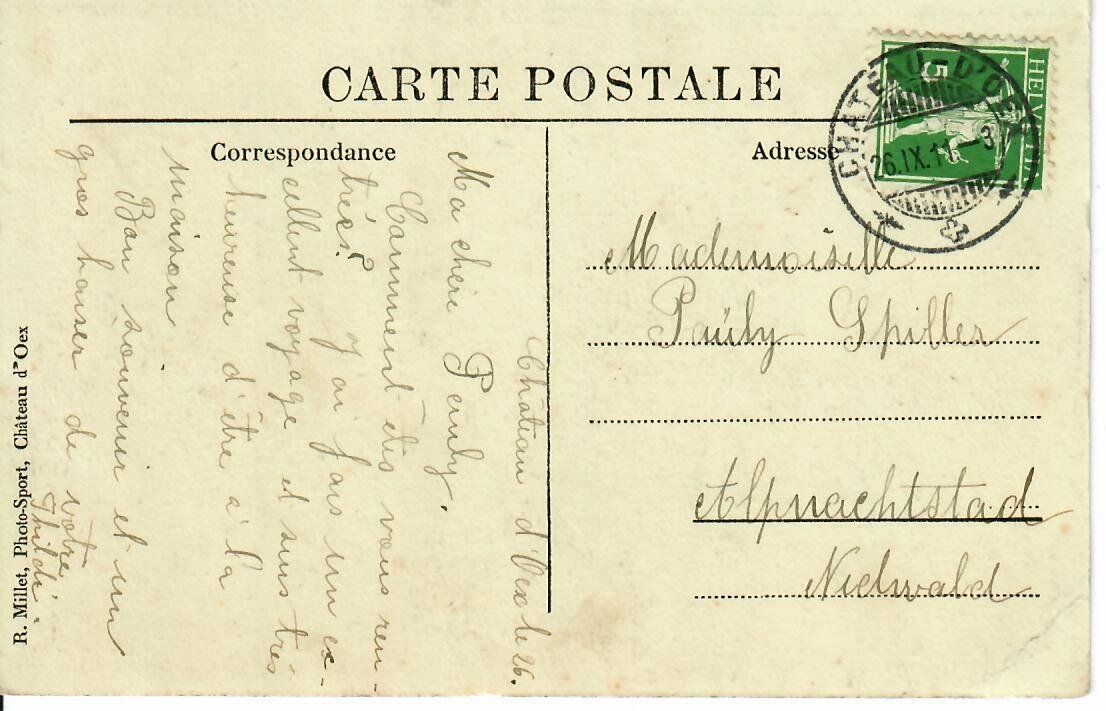 CARTE POSTALE
Correspondance
Adresse
HELVETIA
5
CHATEAU-D'OEX
26.IX.11 – 3
Château d'Oex le 26.
Ma chère Pauly,
Comment êtes vous ren-
trée? J'ai fais un ex-
cellent voyage et suis très
heureuse d'être à la
maison
Bon souvenir et un
gros baiser de votre
Thildi.
Mademoiselle
Pauly Spiller
Alpnachtstad
Nidwald
R. Millet, Photo-Sport, Château d'Oex